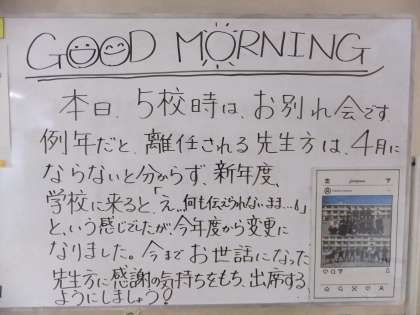 GOOD MORNING
本日、5校時は、お別れ会です
例年だと、離任される先生方は、4月に
ならないと分からず、新年度、
学校に来ると、「え…何も伝えられないまま…。」
と、いう感じでしたが、今年度から変更に
なりました。今までお世話になった
先生方に感謝の気持ちをもち、出席する
ようにしましょう?